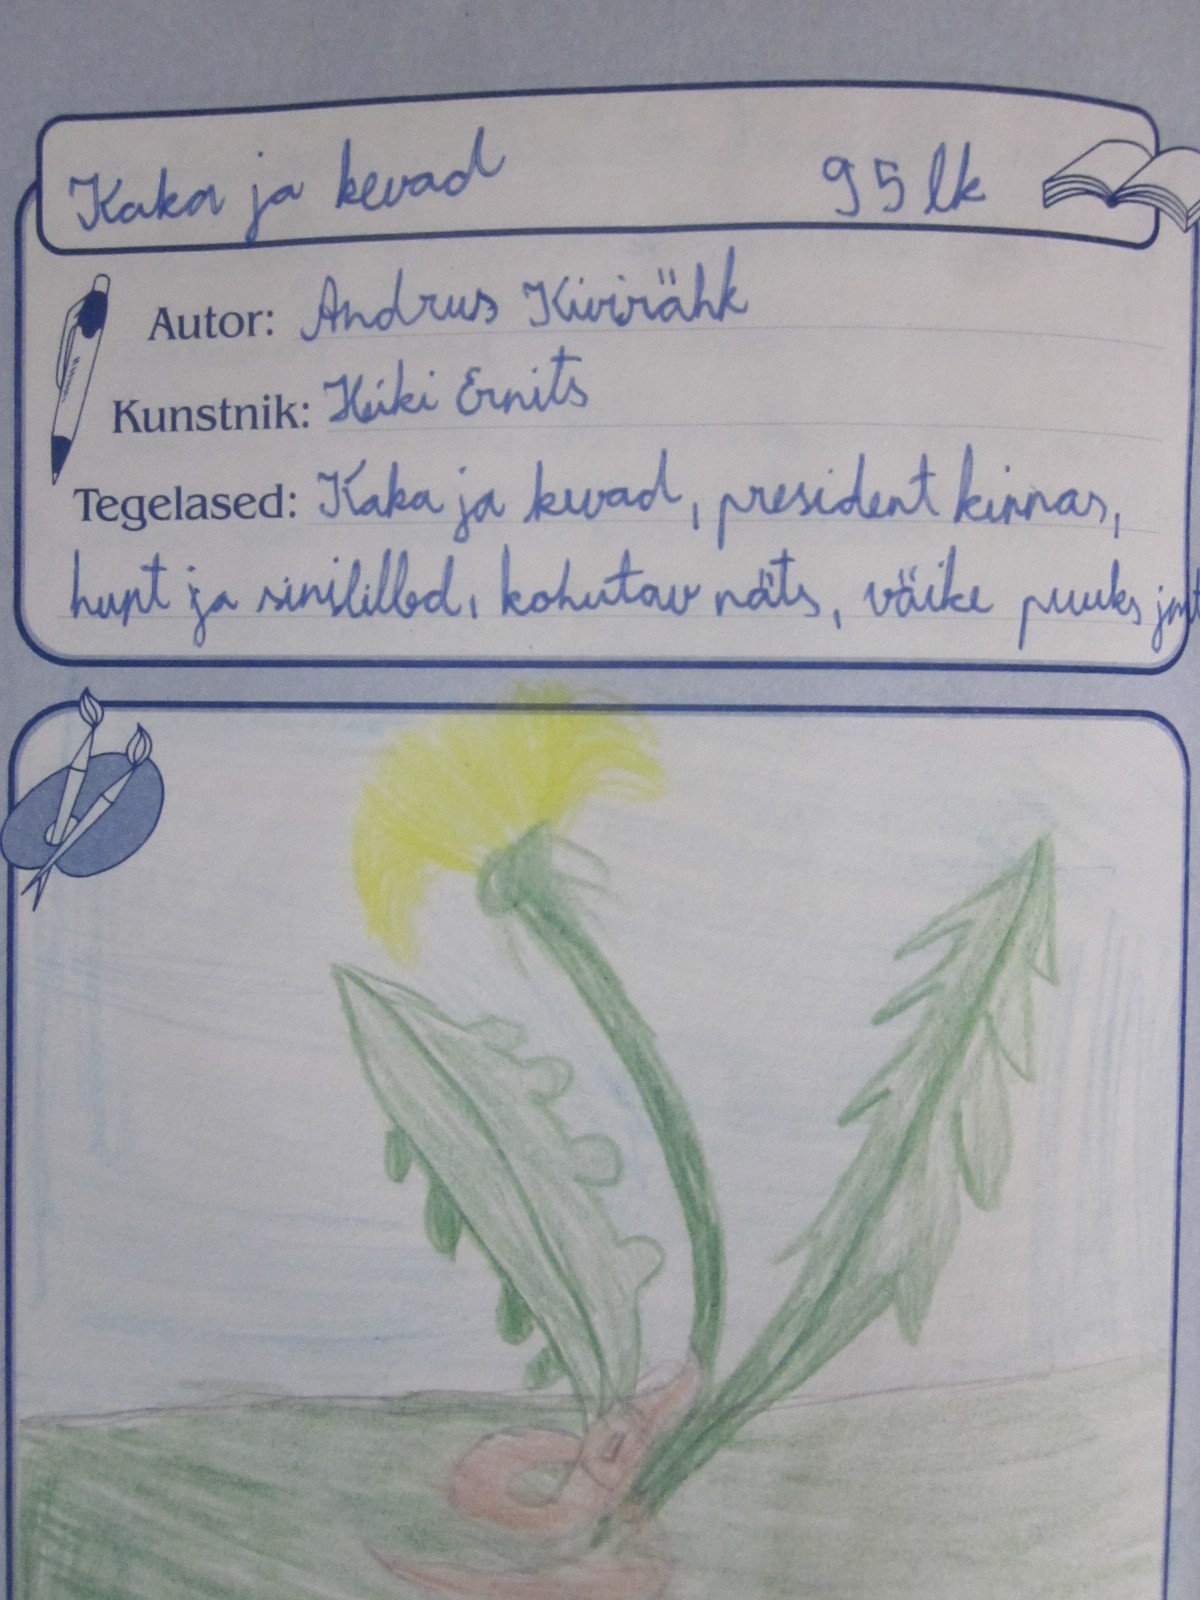 Kaka ja kevad 95 lk
Autor: Andrus Kivirähk
Kunstnik: Heiki Ernits
Tegelased: Kaka ja kevad, president kinnas,
hunt ja sinililled, kohutav näts, väike puuks jnt